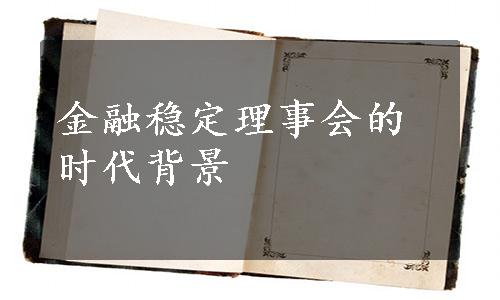 金融稳定理事会的
时代背景